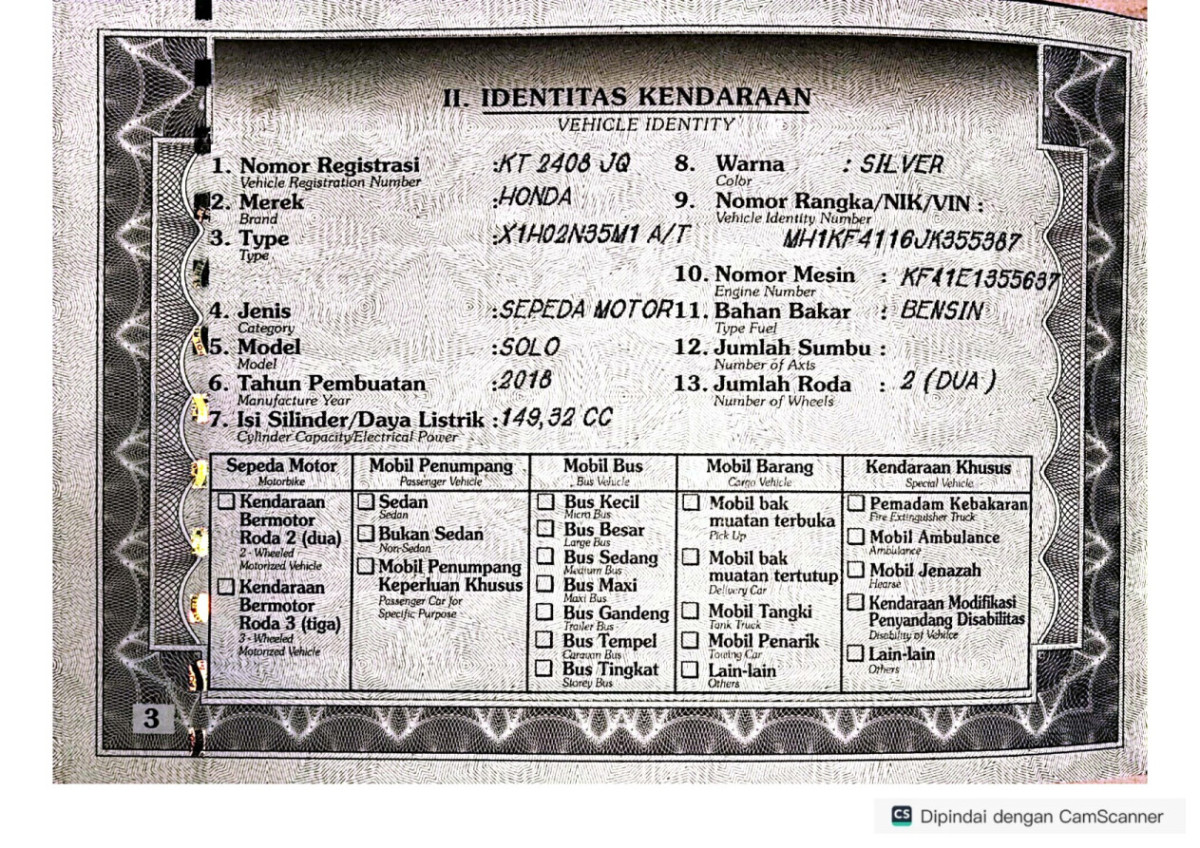 II. IDENTITAS KENDARAAN
VEHICLE IDENTITY
1. Nomor Registrasi :KT 2408 JQ
Vehicle Registration Number
2. Merek :HONDA
Brand
3. Type :X1H02N35M1 A/T
Type
4. Jenis :SEPEDA MOTOR
Category
5. Model :SOLO
Model
6. Tahun Pembuatan :2018
Manufacture Year
7. Isi Silinder/Daya Listrik :149,32 CC
Cylinder Capacity/Electrical Power
8. Warna : SILVER
Color
9. Nomor Rangka/NIK/VIN :
Vehicle Identity Number
MH1KF4116JK355387
10. Nomor Mesin : KF41E1355637
Engine Number
11. Bahan Bakar : BENSIN
Type Fuel
12. Jumlah Sumbu :
Number of Axis
13. Jumlah Roda : 2 (DUA)
Number of Wheels
Sepeda Motor
Motorbike
Kendaraan
Bermotor
Roda 2 (dua)
2 - Wheeled
Motorized Vehicle
Kendaraan
Bermotor
Roda 3 (tiga)
3 - Wheeled
Motorized Vehicle
Mobil Penumpang
Passenger Vehicle
Sedan
Sedan
Bukan Sedan
Non-Sedan
Mobil Penumpang
Keperluan Khusus
Passenger Car for
Specific Purpose
Mobil Bus
Bus Vehicle
Bus Kecil
Micro Bus
Bus Besar
Large Bus
Bus Sedang
Medium Bus
Bus Maxi
Maxi Bus
Bus Gandeng
Trailer Bus
Bus Tempel
Caravan Bus
Bus Tingkat
Storey Bus
Mobil Barang
Cargo Vehicle
Mobil bak
muatan terbuka
Pick Up
Mobil bak
muatan tertutup
Delivery Car
Mobil Tangki
Tank Truck
Mobil Penarik
Towing Car
Lain-lain
Others
Kendaraan Khusus
Special Vehicle
Pemadam Kebakaran
Fire Extinguisher Truck
Mobil Ambulance
Ambulance
Mobil Jenazah
Hearse
Kendaraan Modifikasi
Penyandang Disabilitas
Disability of Vehilce
Lain-lain
Others
3
CS Dipindai dengan CamScanner